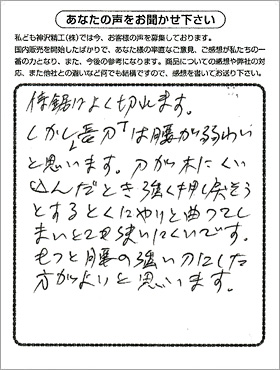 あなたの声をお聞かせ下さい
私ども神沢精工(株)では今、お客様の声を募集しております。
国内販売を開始したばかりで、あなた様の率直なご意見、ご感想が私たちの一
番の力となり、また、今後の参考になります。商品についての感想や弊社の対
応、また他社との違いなど何でも結構ですので、感想を書いてお送り下さい。
侍鋸はよく切れます。
しかし「吾刀」は腰が弱わい
と思います。刀が木にくい
込んだとき強く押し戻そう
とするとくにやりと曲つてし
まいとても使いにくいです。
もつと腰の強い刀にした
方がよいと思います。